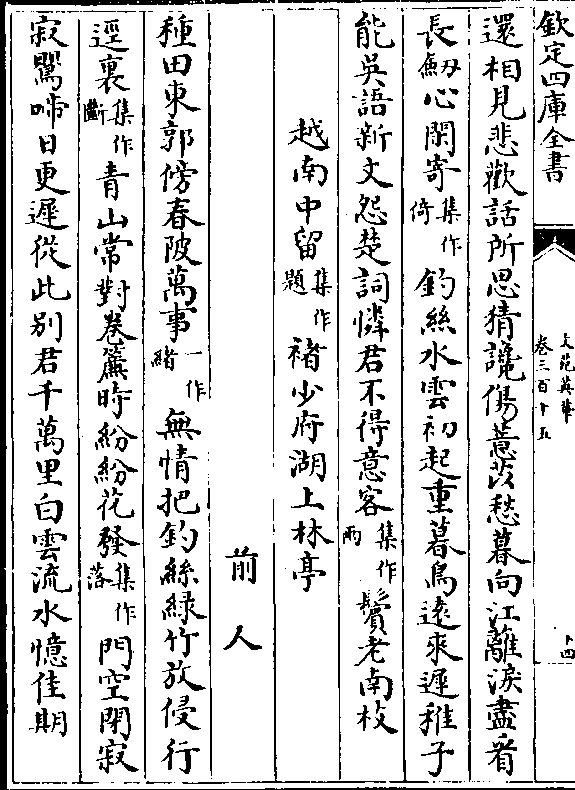 欽定四庫全書
文苑英華
卷三百十五
十四
還相見悲歡話所思猜讒傷薏苡愁暮向江離淚盡看
長劒心閑寄集作倚釣絲水雲初起重暮鳥遠來遲稚子
能吳語新文怨楚詞憐君不得意客集作兩鬢老南枝
越南中留集作題褚少府湖上林亭
前人
種田東郭傍春陂萬事一作緒無情把釣絲綠竹放侵行
逕裏集作斷青山常對卷簾時紛紛花發集作落門空閉寂
寂鸎啼日更遲從此別君千萬里白雲流水憶佳期